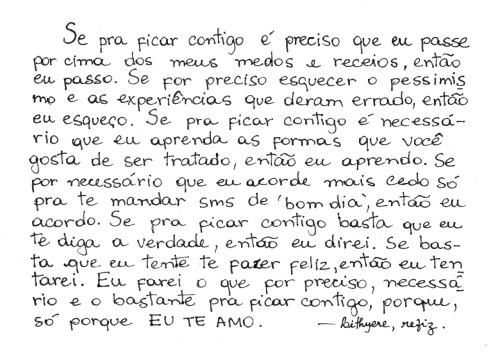 Se pra ficar contigo é preciso que eu passe
por cima dos meus medos e receios, então
eu passo. Se for preciso esquecer o pessimis
mo e as experiências que deram errado, então
eu esqueço. Se pra ficar contigo é necessá-
rio que eu aprenda as formas que você
gosta de ser tratado, então eu aprendo. Se
por necessário que eu acorde mais cedo só
pra te mandar sms de 'bom dia', então eu
acordo. Se pra ficar contigo basta que eu
te diga a verdade, então eu direi. Se bas-
ta que eu tente te fazer feliz, então eu ten
tarei. Eu farei o que for preciso, necessá
rio e o bastante pra ficar contigo, porque,
só porque EU TE AMO. —